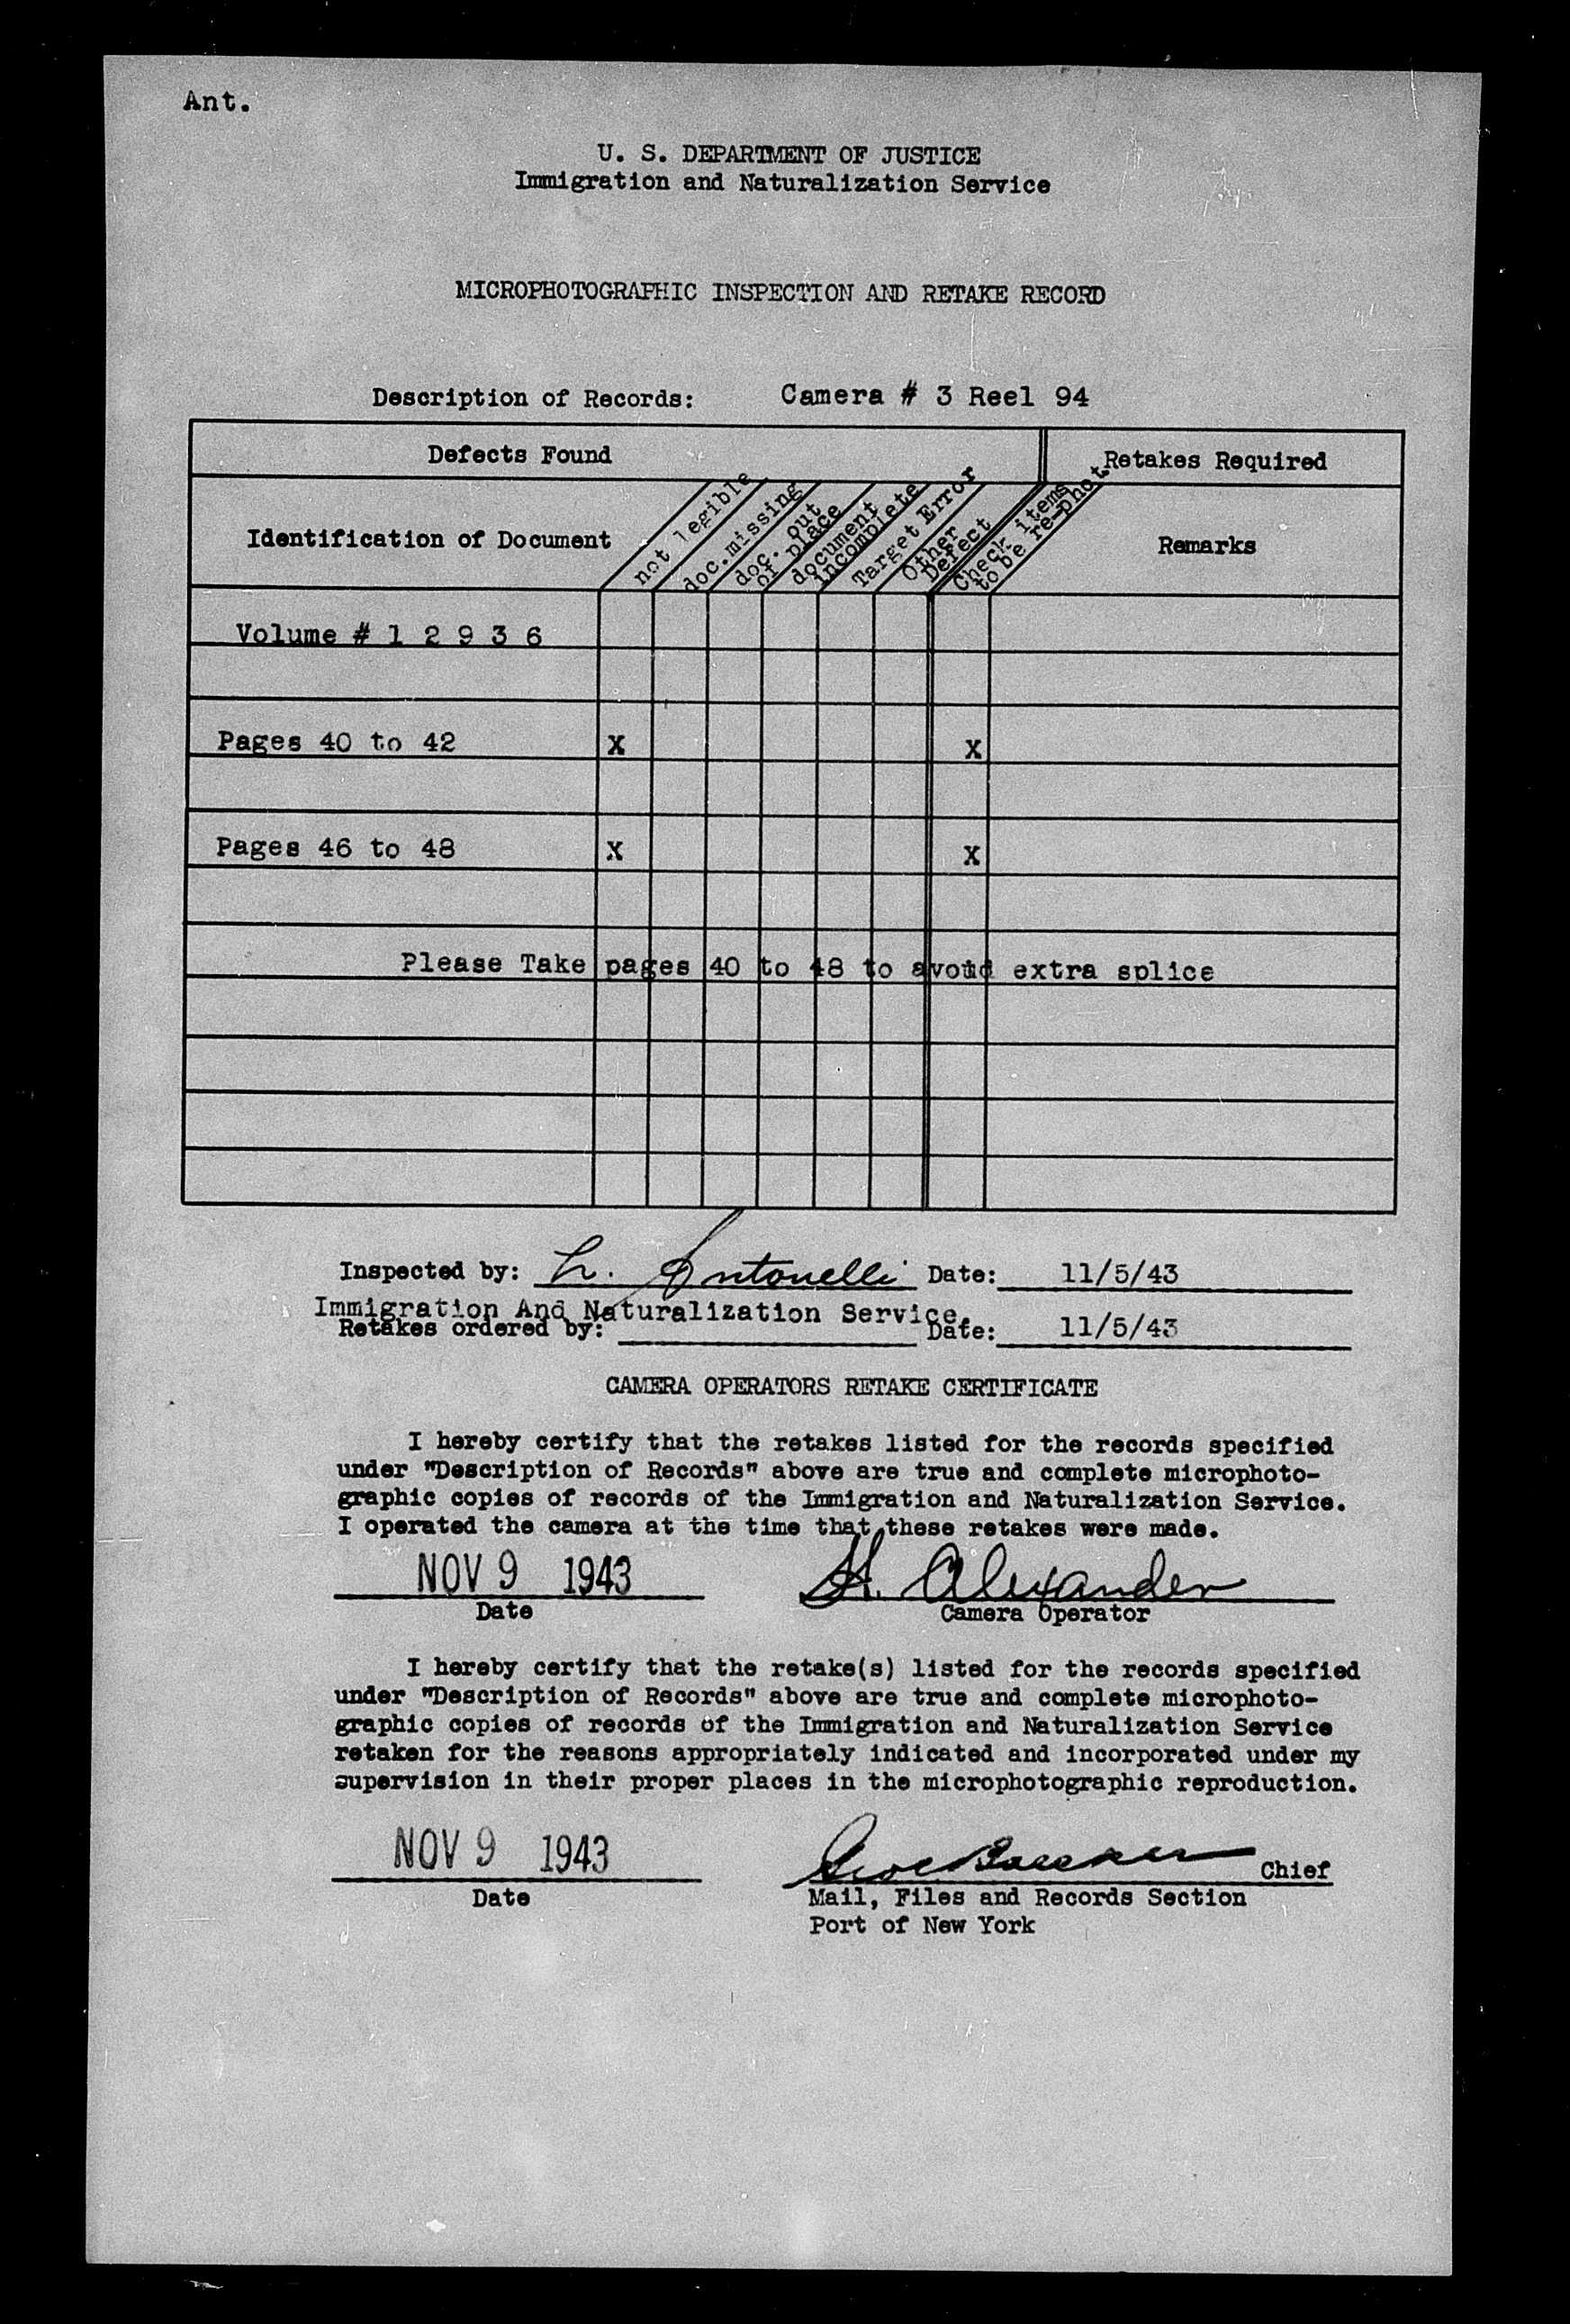 Ant.
U. S. DEPARTMENT OF JUSTICE
Immigration and Naturalization Service
MICROPHOTOGRAPHIC INSPECTION AND RETAKE RECORD
Description of Records: Camera # 3 Reel 94
Defects Found
Retakes Required
Identification of Document
not legible
doc. missing
doc. out
of place
document
incomplete
Target Error
Other
Defect
Check items
to be re-phot.
Remarks
Volume # 1 2 9 3 6
Pages 40 to 42 X X
Pages 46 to 48 X X
Please Take pages 40 to 48 to avoid extra splice
Inspected by: L. Antonelli Date: 11/5/43
Immigration And Naturalization Service.
Retakes ordered by: Date: 11/5/43
CAMERA OPERATORS RETAKE CERTIFICATE
I hereby certify that the retakes listed for the records specified
under "Description of Records" above are true and complete microphoto-
graphic copies of records of the Immigration and Naturalization Service.
I operated the camera at the time that these retakes were made.
NOV 9 1943 H. Alexander
Date Camera Operator
I hereby certify that the retake(s) listed for the records specified
under "Description of Records" above are true and complete microphoto-
graphic copies of records of the Immigration and Naturalization Service
retaken for the reasons appropriately indicated and incorporated under my
supervision in their proper places in the microphotographic reproduction.
NOV 9 1943 Chief
Date Mail, Files and Records Section
Port of New York